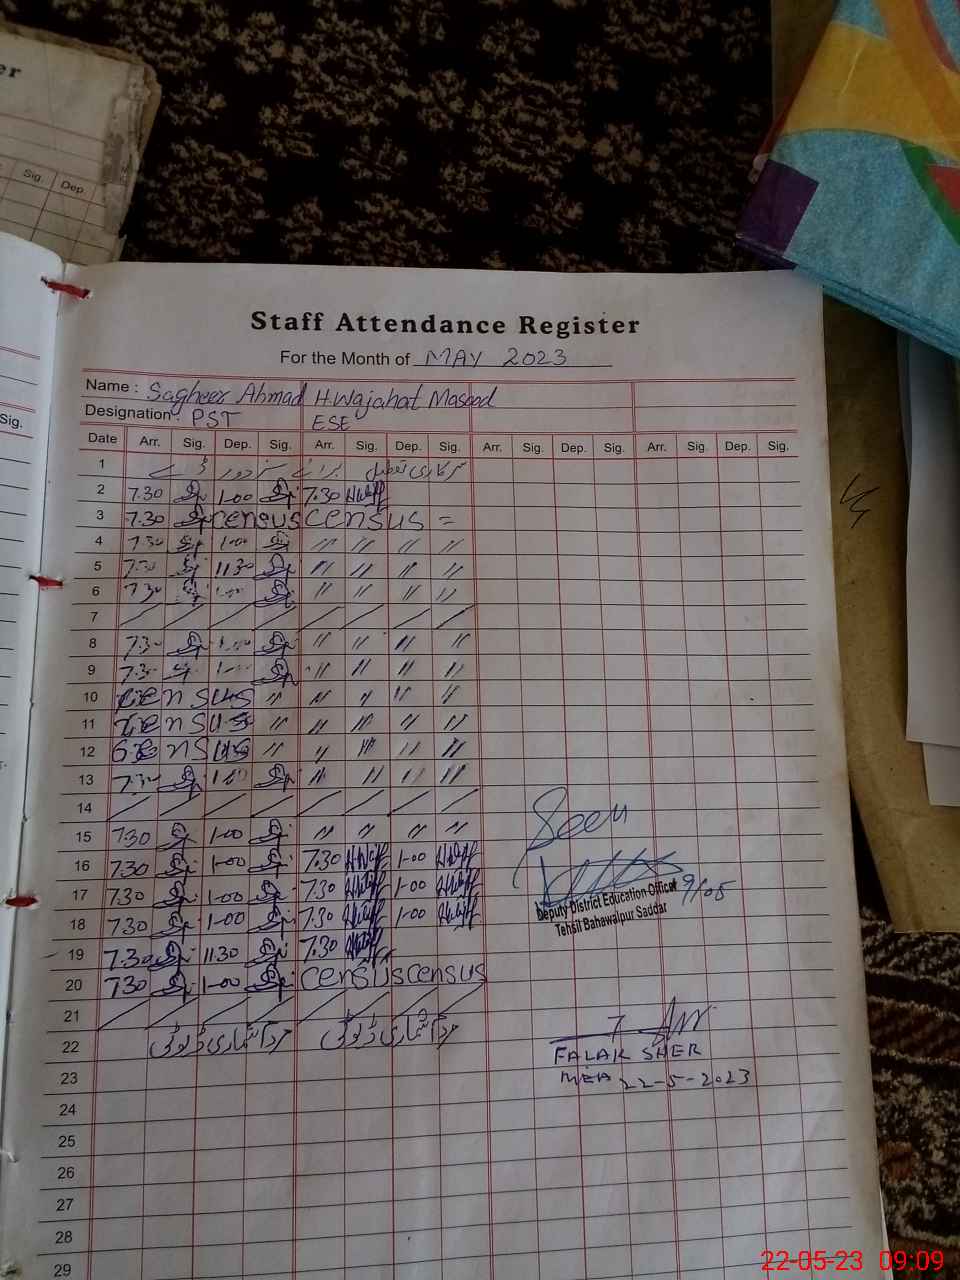 er
Sig. Dep.
Sig.
Staff Attendance Register
For the Month of MAY 2023
Name : Sagheer Ahmad H.Wajahat Masood
Designation : PST ESE
Date Arr. Sig. Dep. Sig. Arr. Sig. Dep. Sig. Arr. Sig. Dep. Sig. Arr. Sig. Dep. Sig.
1
2 7.30 1-00 7.30
3 7.30 census census =
4 7.30 1-00 〃 〃 〃 〃
5 7.30 11.30 〃 〃 〃 〃
6 7.30 〃 〃 〃 〃
7
8 7.30 〃 〃 〃 〃
9 7.30 〃 〃 〃 〃
10 census 〃 〃 〃 〃 〃
11 census 〃 〃 〃 〃 〃
12 census 〃 〃 〃 〃 〃
13 7.30 〃 〃 〃 〃
14
15 7.30 1-00 〃 〃 〃 〃
16 7.30 1-00 7.30 1-00
17 7.30 1-00 7.30 1-00
18 7.30 1-00 7.30 1-00
19 7.30 11.30 7.30
20 7.30 1-00 census census
21
22
23
24
25
26
27
28
29
Seen
9/05
Deputy District Education Officer
Tehsil Bahawalpur Saddar
FALAK SHER
MEA 22-5-2023
22-05-23 09:09